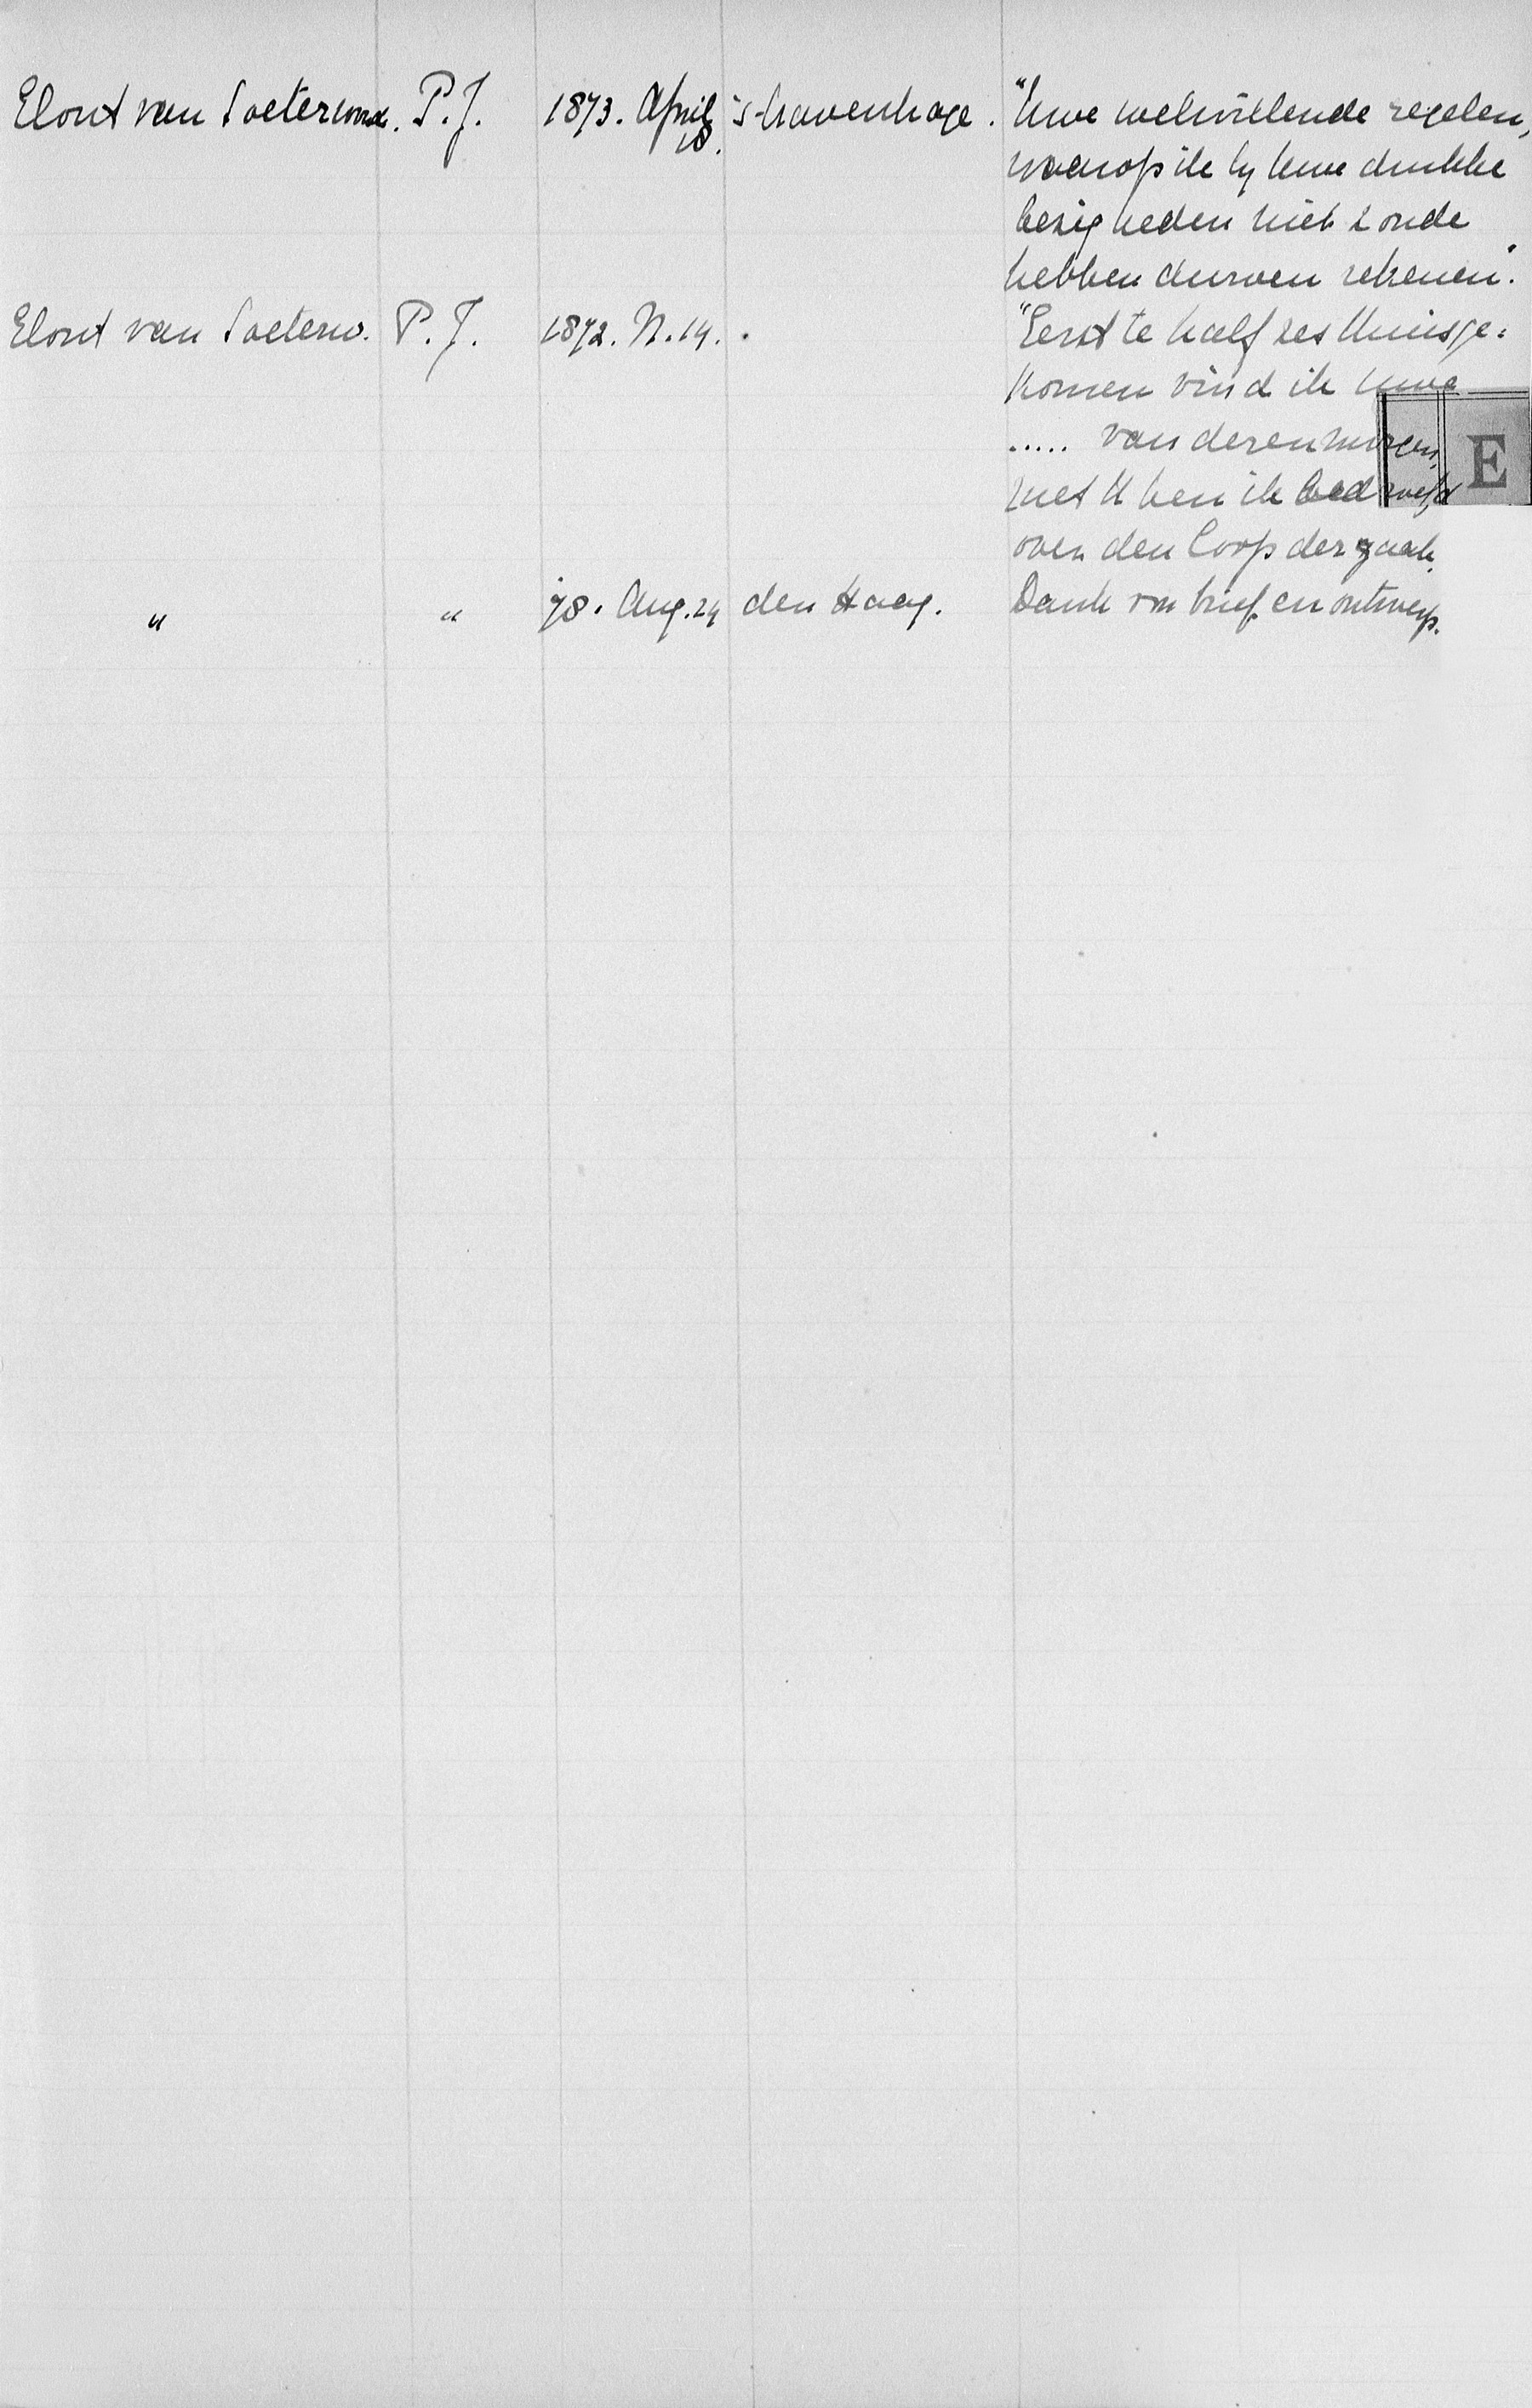 Elout van Soeterwoud. P.J. 1873. April 18. 's-Gravenhage. "Uwe welwillende regelen,
waarop ik by Uwe drukke
bezigheden niet zoude
hebben durven rekenen".
Elout van Soeterw. P.J. 1872. N. 14. "Eerst te half zes thuisge=
komen vind ik Uwe
..... van dezen morgen,
met U ben ik bedroefd
over den loop der zaak.
" " 78. Aug. 24 den Haag. Dank vor brief en ontwerp.
E